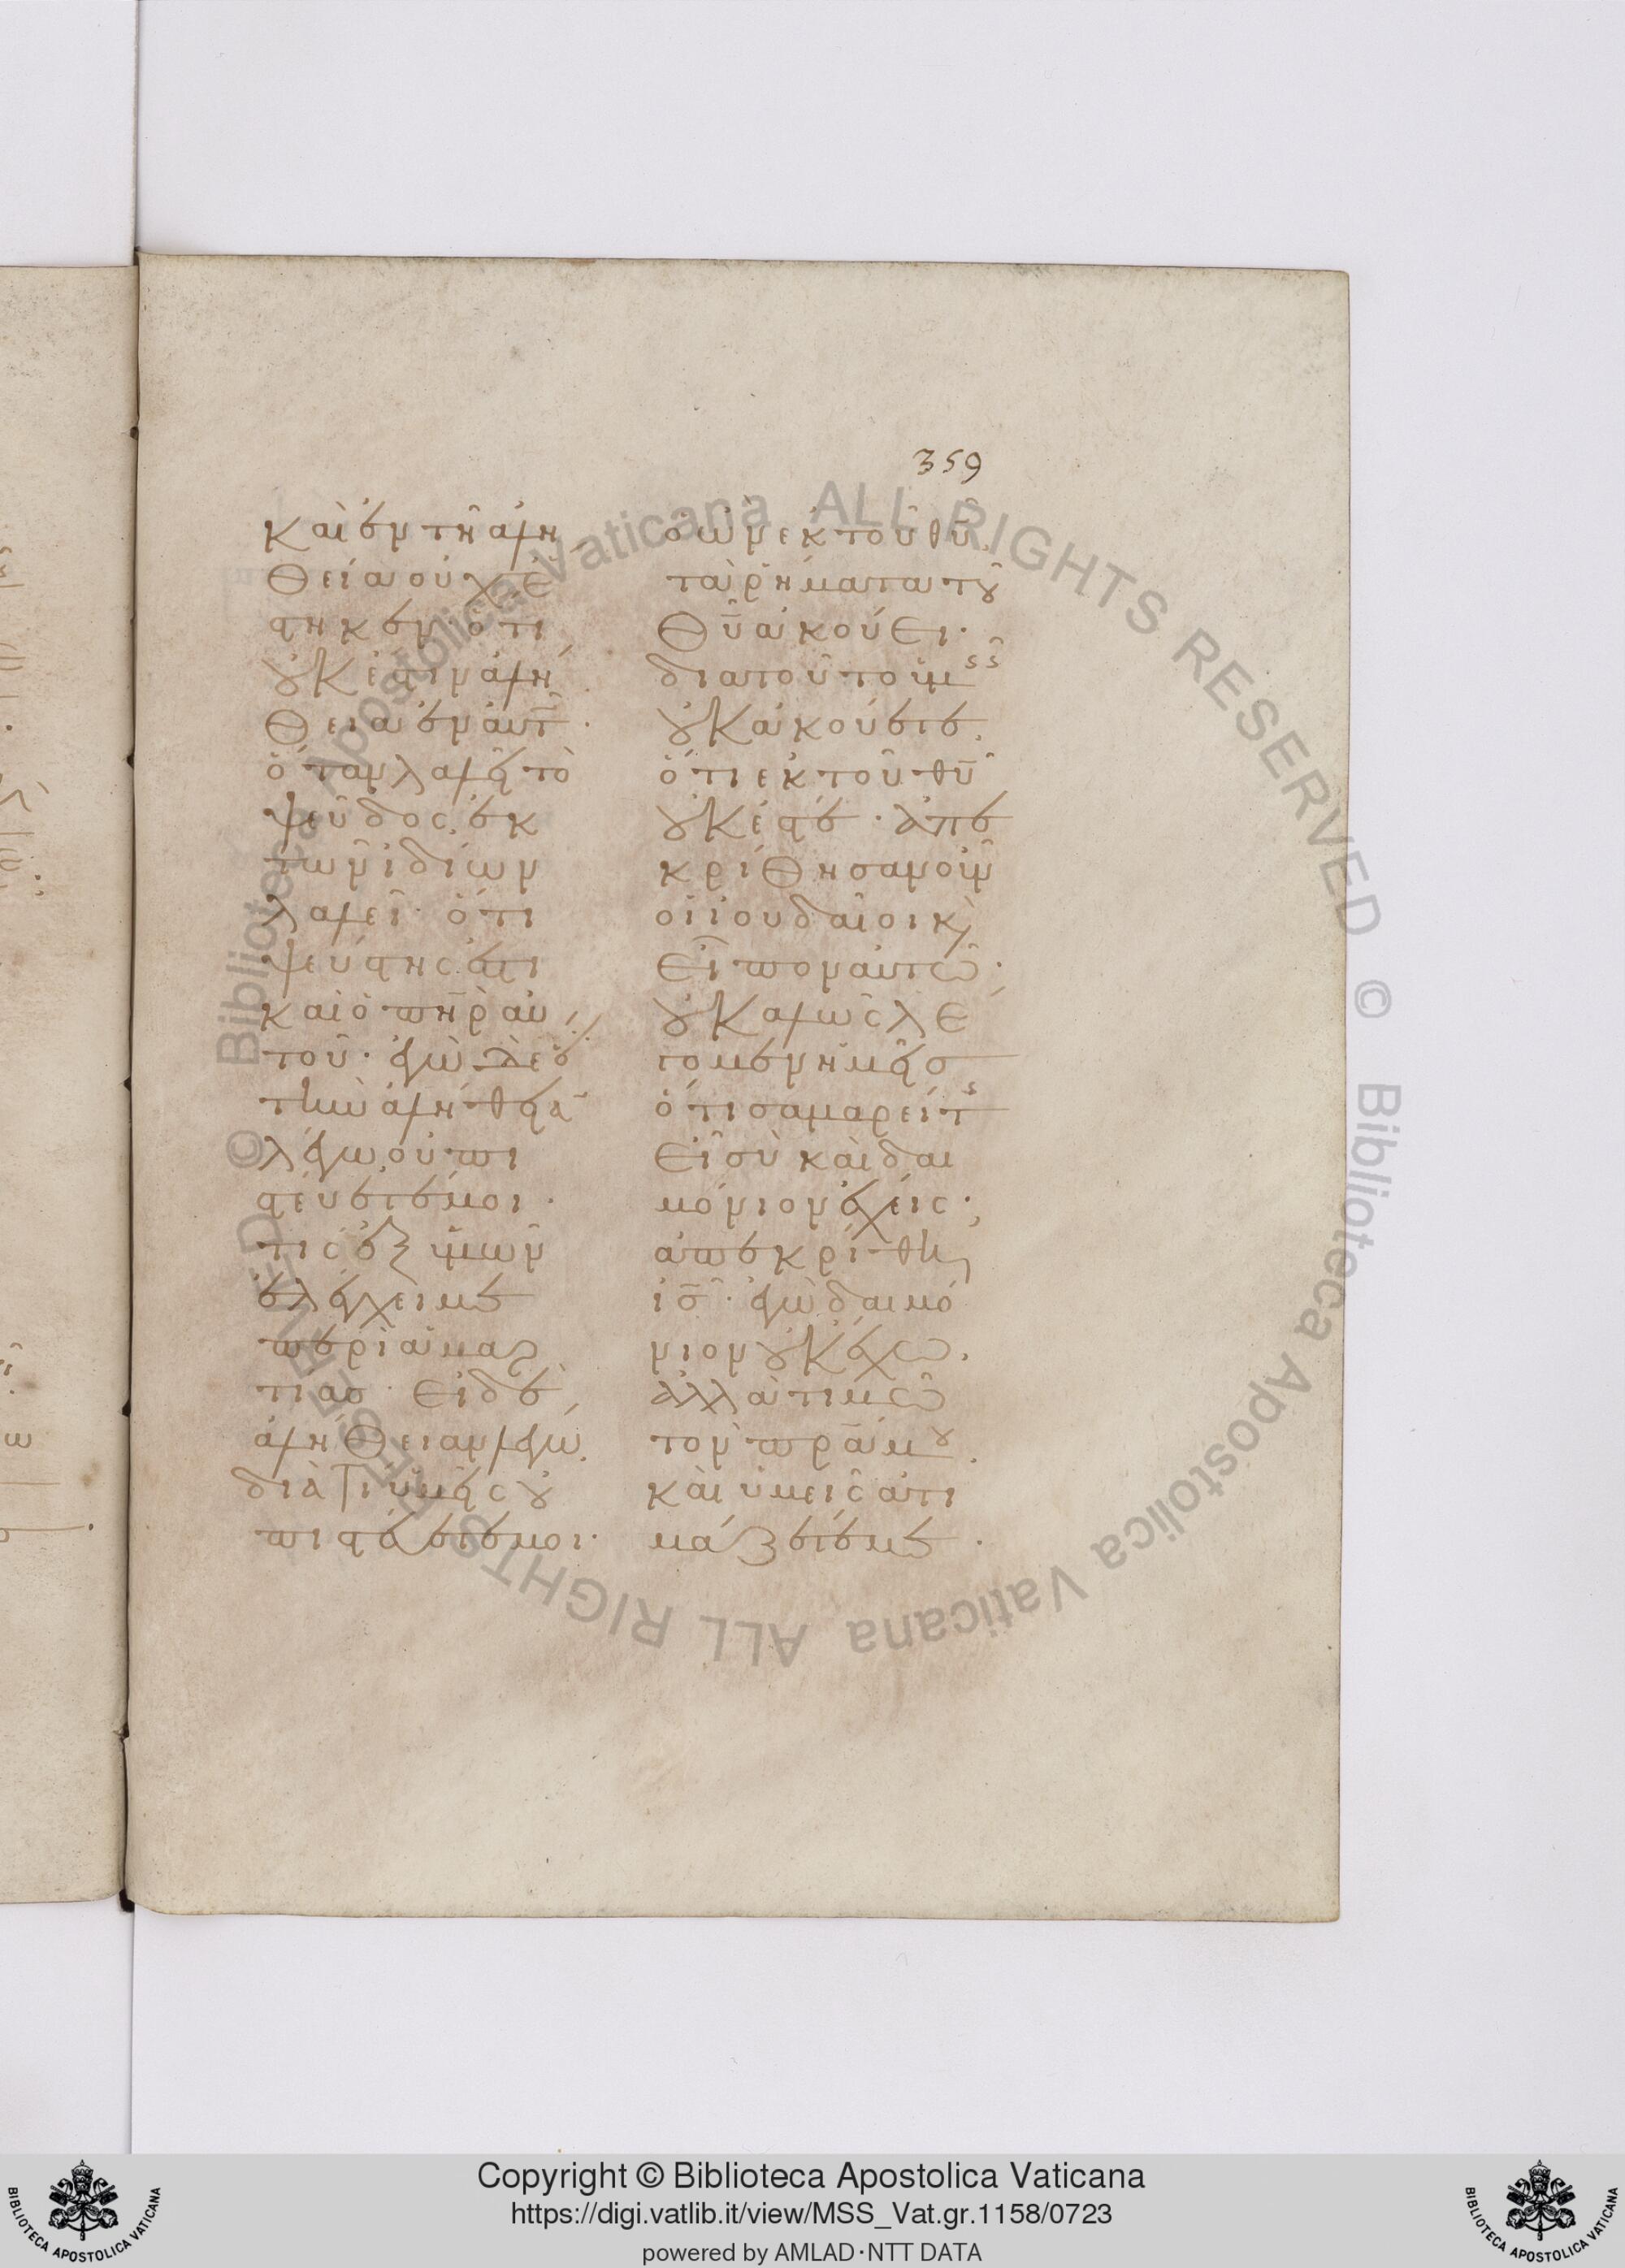 359
καὶ ἐν τῆ ἀλη
θεία οὐχ ἕ
στηκεν· ὅτι
οὐκ ἔστιν ἀλή
θεια ἐν αὐτῶ·
ὅταν λαλῆ τὸ
ψεῦδος, ἐκ
τῶν ἰδίων
λαλεῖ· ὅτι
ψεύστης ἐστὶ
καὶ ὁ πηρ αὐ
τοῦ· ἐγὼ δὲ ὅτι
τὴν ἀλήθειαν
λέγω, οὐ πι
στεύετέ μοι·
τίς ἐξ ὑμῶν
ἐλέγχει με
περὶ ἁμαρ
τίας· εἰ δὲ
ἀλήθειαν λέγω,
διὰ τί ὑμεῖς οὐ
πιστεύετέ μοι·
ὁ ὢν ἐκ τοῦ θυ,
τὰ ῥήματα τοῦ
θυ ἀκούει·
διατοῦτο ὑμεῖς
οὐκ ἀκούετε,
ὅτι ἐκ τοῦ θυ
οὐκ ἐστέ· ἀπε
κρίθησαν οὖν
οἱ ἰουδαῖοι κὶ
εἶπον αὐτῶ·
οὐ καλῶς λέ
γομεν ἡμεῖς
ὅτι σαμαρείτης
εἶ σὺ καὶ δαι
μόνιον ἔχεις;
ἀπεκρίθη
ις· ἐγὼ δαιμό
νιον οὐκ ἔχω,
ἀλλὰ τιμῶ
τὸν πρα μου,
καὶ ὑμεῖς ἀτι
μάζετέ με·
Copyright © Biblioteca Apostolica Vaticana
https://digi.vatlib.it/view/MSS_Vat.gr.1158/0723
powered by AMLAD·NTT DATA
BIBLIOTECA APOSTOLICA VATICANA
BIBLIOTECA APOSTOLICA VATICANA
© Biblioteca Apostolica Vaticana ALL RIGHTS RESERVED © Biblioteca Apostolica Vaticana ALL RIGHTS RESERVED